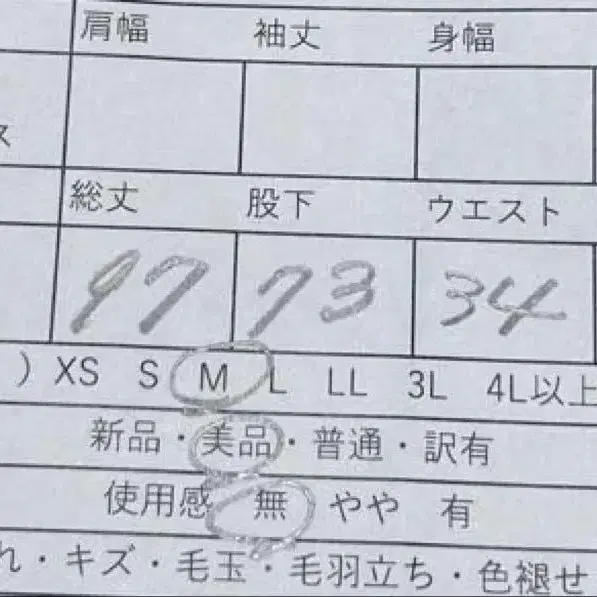 肩幅 袖丈 身幅
ス
総丈 股下 ウエスト
97 73 34
) XS S M L LL 3L 4L以上
新品・美品・普通・訳有
使用感 無 やや 有
れ・キズ・毛玉・毛羽立ち・色褪せ